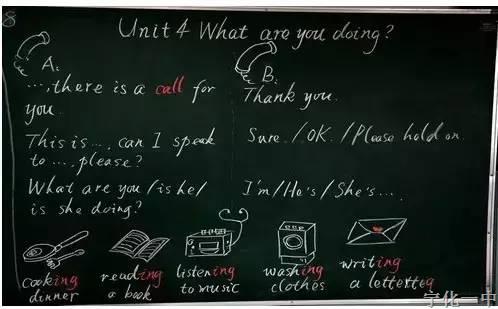 8
Unit 4 What are you doing?
A:
..., there is a call for
you.
This is ..., can I speak
to ..., please?
What are you / is he /
is she doing?
B:
Thank you.
Sure. / OK. / Please hold on.
I'm / He's / She's ....
cooking
dinner
reading
a book
listening
to music
washing
clothes
writing
a letter
宁化一中